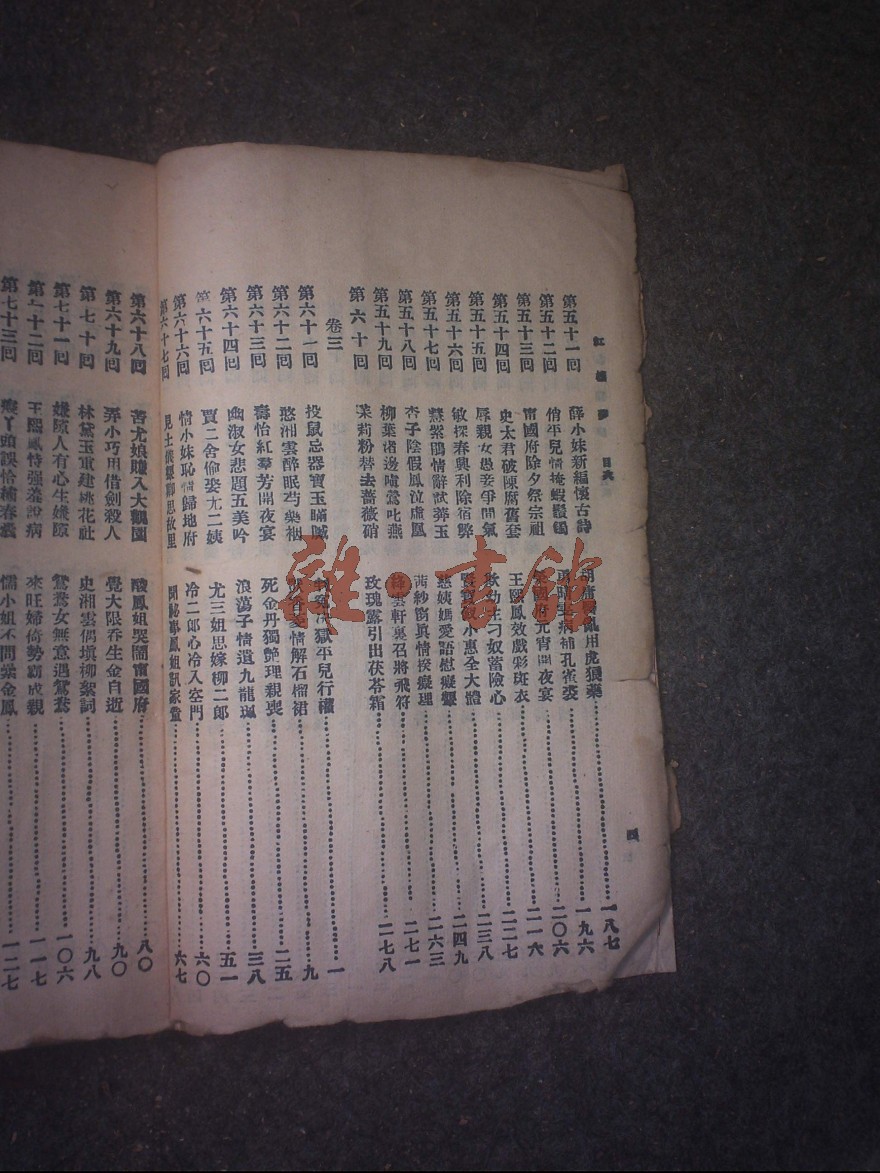 紅樓夢 目次
第五十一回 薛小妹新編懷古詩 胡庸 亂用虎狼藥 一八七
第五十二回 俏平兒情掩蝦鬚鐲 病補孔雀裘 一九六
第五十三回 甯國府除夕祭宗祖 國府元宵開夜宴 二〇六
第五十四回 史太君破陳腐舊套 王熙鳳效戲彩斑衣 二一六
第五十五回 辱親女愚妾爭閒氣 欺幼主刁奴蓄險心 二二七
第五十六回 敏探春興利除宿弊 小惠全大體 二三八
第五十七回 慧紫鵑情辭試莽玉 慈姨媽愛語慰癡顰 二四九
第五十八回 杏子陰假鳳泣虛凰 茜紗窗眞情揆癡理 二六三
第五十九回 柳葉渚邊嗔鶯叱燕 絳雲軒裏召將飛符 二七一
第六十回 茉莉粉替去薔薇硝 玫瑰露引出茯苓霜 二七八
卷三
第六十一回 投鼠忌器寶玉瞞贓 獄平兒行權 一
第六十二回 憨湘雲醉眠芍藥裀 情解石榴裙 九
第六十三回 壽怡紅羣芳開夜宴 死金丹獨艷理親喪 二五
第六十四回 幽淑女悲題五美吟 浪蕩子情遺九龍珮 三八
第六十五回 賈二舍偷娶尤二姨 尤三姐思嫁柳二郎 五一
第六十六回 情小妹恥情歸地府 冷二郎心冷入空門 六〇
第六十七回 見土儀顰卿思故里 聞秘事鳳姐訊家童 六七
第六十八回 苦尤娘賺入大觀園 酸鳳姐哭鬧甯國府 八〇
第六十九回 弄小巧用借劍殺人 覺大限吞生金自逝 九〇
第七十回 林黛玉重建桃花社 史湘雲偶塡柳絮詞 九八
第七十一回 嫌隙人有心生嫌隙 鴛鴦女無意遇鴛鴦 一〇六
第七十二回 王熙鳳恃强羞說病 來旺婦倚勢霸成親 一一七
第七十三回 癡丫頭誤拾繡春囊 懦小姐不問纍金鳳 一二七
四
雜·書館